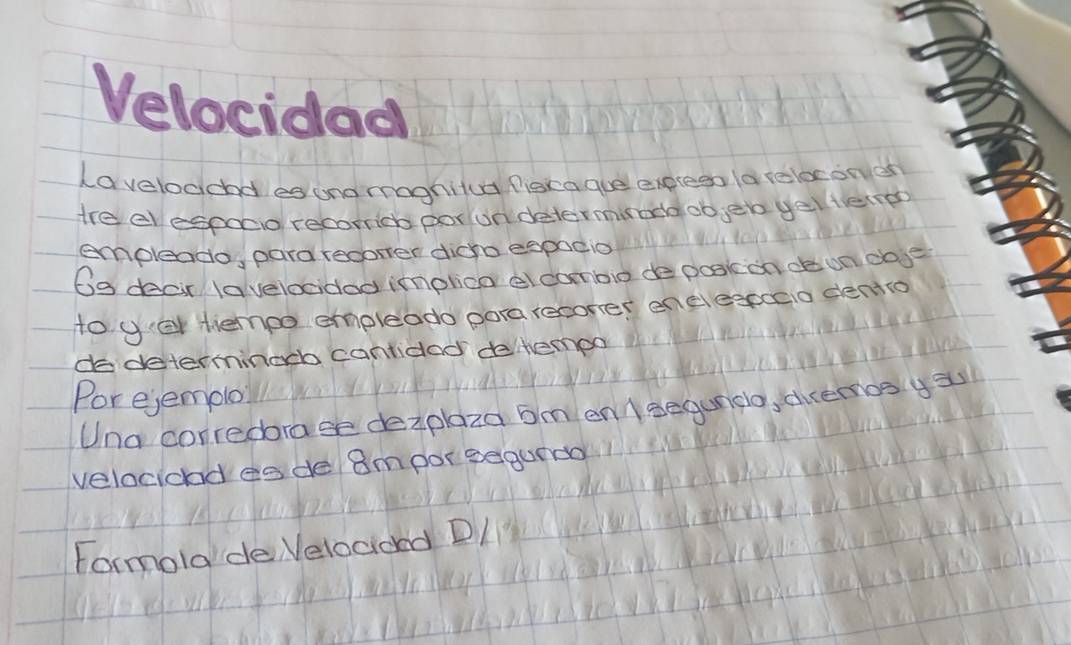 Velocidad
La velocidad es una magnitud fisica que expresa la relacion en
tre el espacio recorrido por un determinado objeto y el tiempo
empleado, para recorrer dicho espacio
Es decir la velocidad implica el cambio de posicion de un obje
to y el tiempo empleado para recorrer en el espacio dentro
de determinada cantidad de tiempo
Por ejemplo
Una corredora se dezplaza 5m en 1 segundo, diremos y su
velocidad es de 8m por segundo
Formola de Velocidad D/